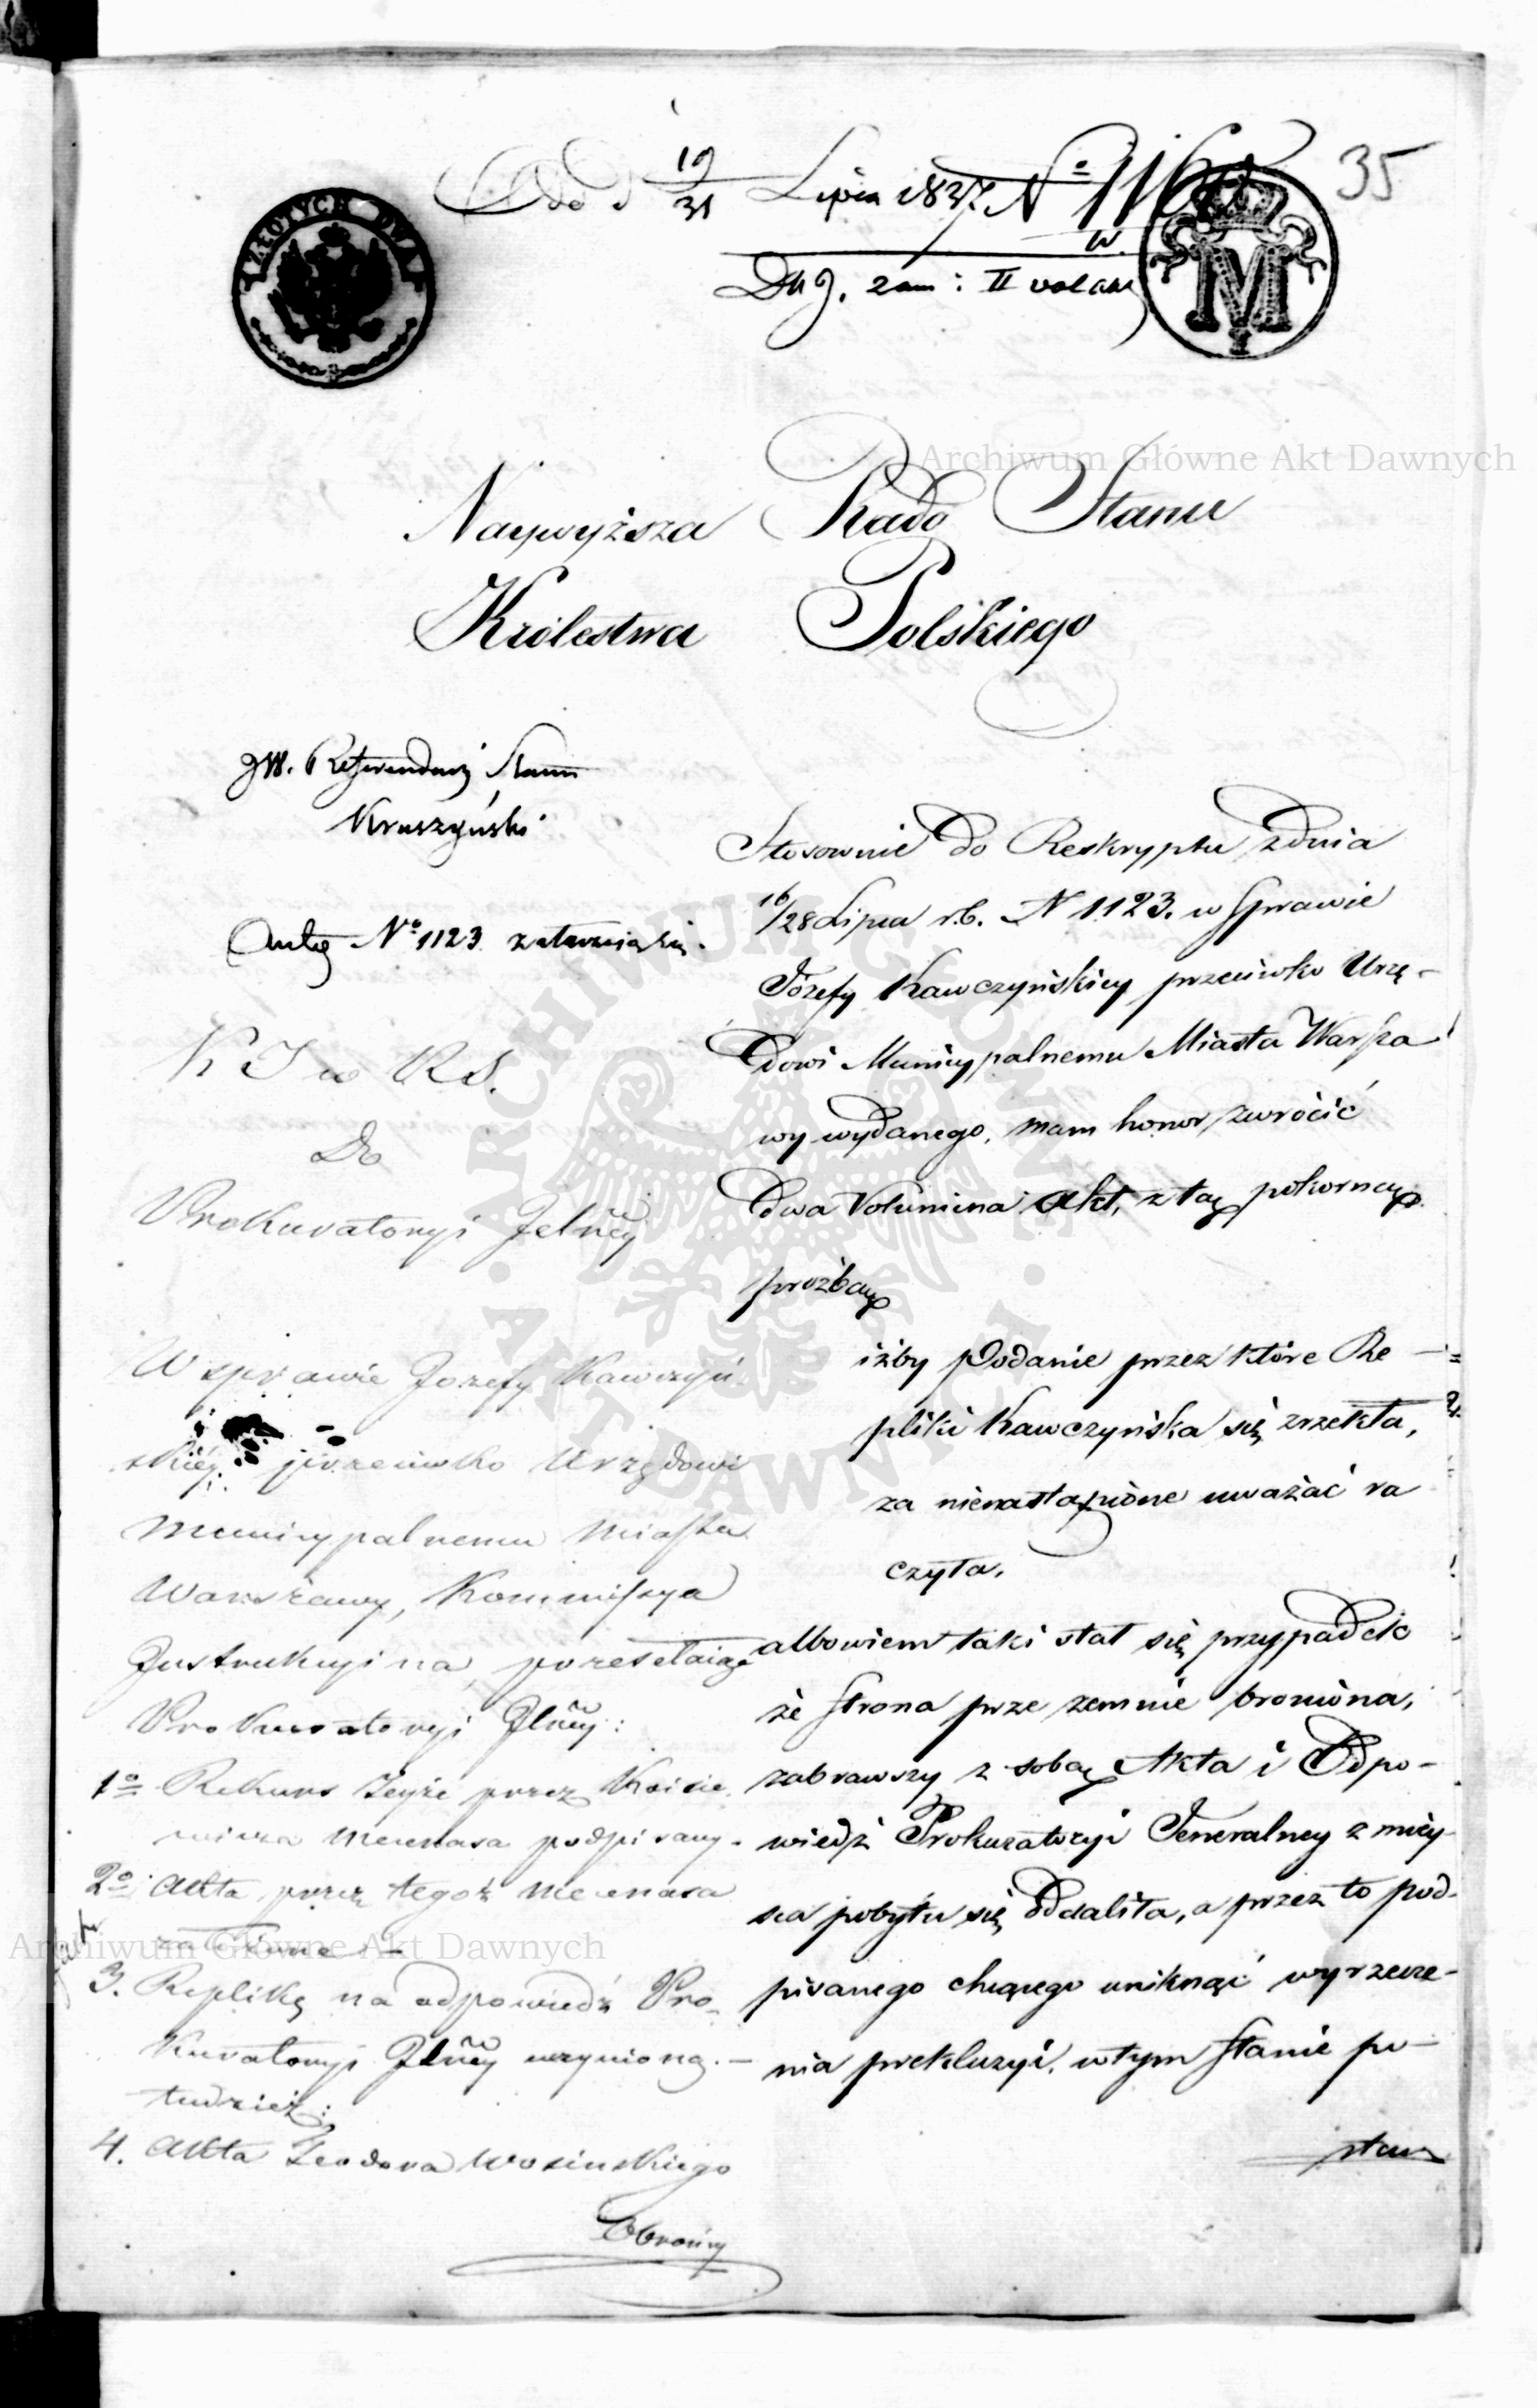 35
Odd d 19/31 Lipca 1837 No 1160
w
Dług. zam: II volum
ZŁOTYCH DWA
M
Naywyższa Rado Stanu
Królestwa Polskiego
JW. Referendarz Stanu
Kruszyński
No 1123
K I w R S.
Do
Prokuratoryi Jelnéy
W sprawie Jozefy Kawczyń-
skiéy przeciwko Urzędowi
Municypalnemu Miasta
Warszawy, Kommissya
Instrukcyina, przesełaiąc
Prokuratoryi Jlnéy:
1o Rekurs teyże przez
Mecenasa podpisany.
2o Akta przez tegoż Mecenasa
załączone
3. Replikę na odpowiedź Pro-
kuratoryi Jlnéy uczynioną. —
tudzież:
4. Akta Teodora Wosinskiego
Obrońcy
Stosownie do Reskryptu z dnia
16/28 Lipca r.b. N 1123. w Sprawie
Józefy Kawczyńskiey przeciwko Urzę-
dowi Municypalnemu Miasta Warsza
wy wydanego, mam honor zwrócić
dwa Volumina Akt, z tą pokorną
prożbą
iżby Podanie przez które Re-
pliki Kawczyńska się zrzekła,
za nienastąpione uważać ra
czyła.
albowiem taki stał się przypadek
że strona prze zemnie broniona,
zabrawszy z sobą Akta i Odpo-
wiedź Prokuratoryi Jeneralney z miey
sca pobytu się oddaliła, a przez to pod-
pisanego chcącego uniknąć wyrzecze-
nia prekluzyi, w tym stanie po-
staw
Archiwum Główne Akt Dawnych
ARCHIWUM GŁÓWNE AKT DAWNYCH
Archiwum Główne Akt Dawnych